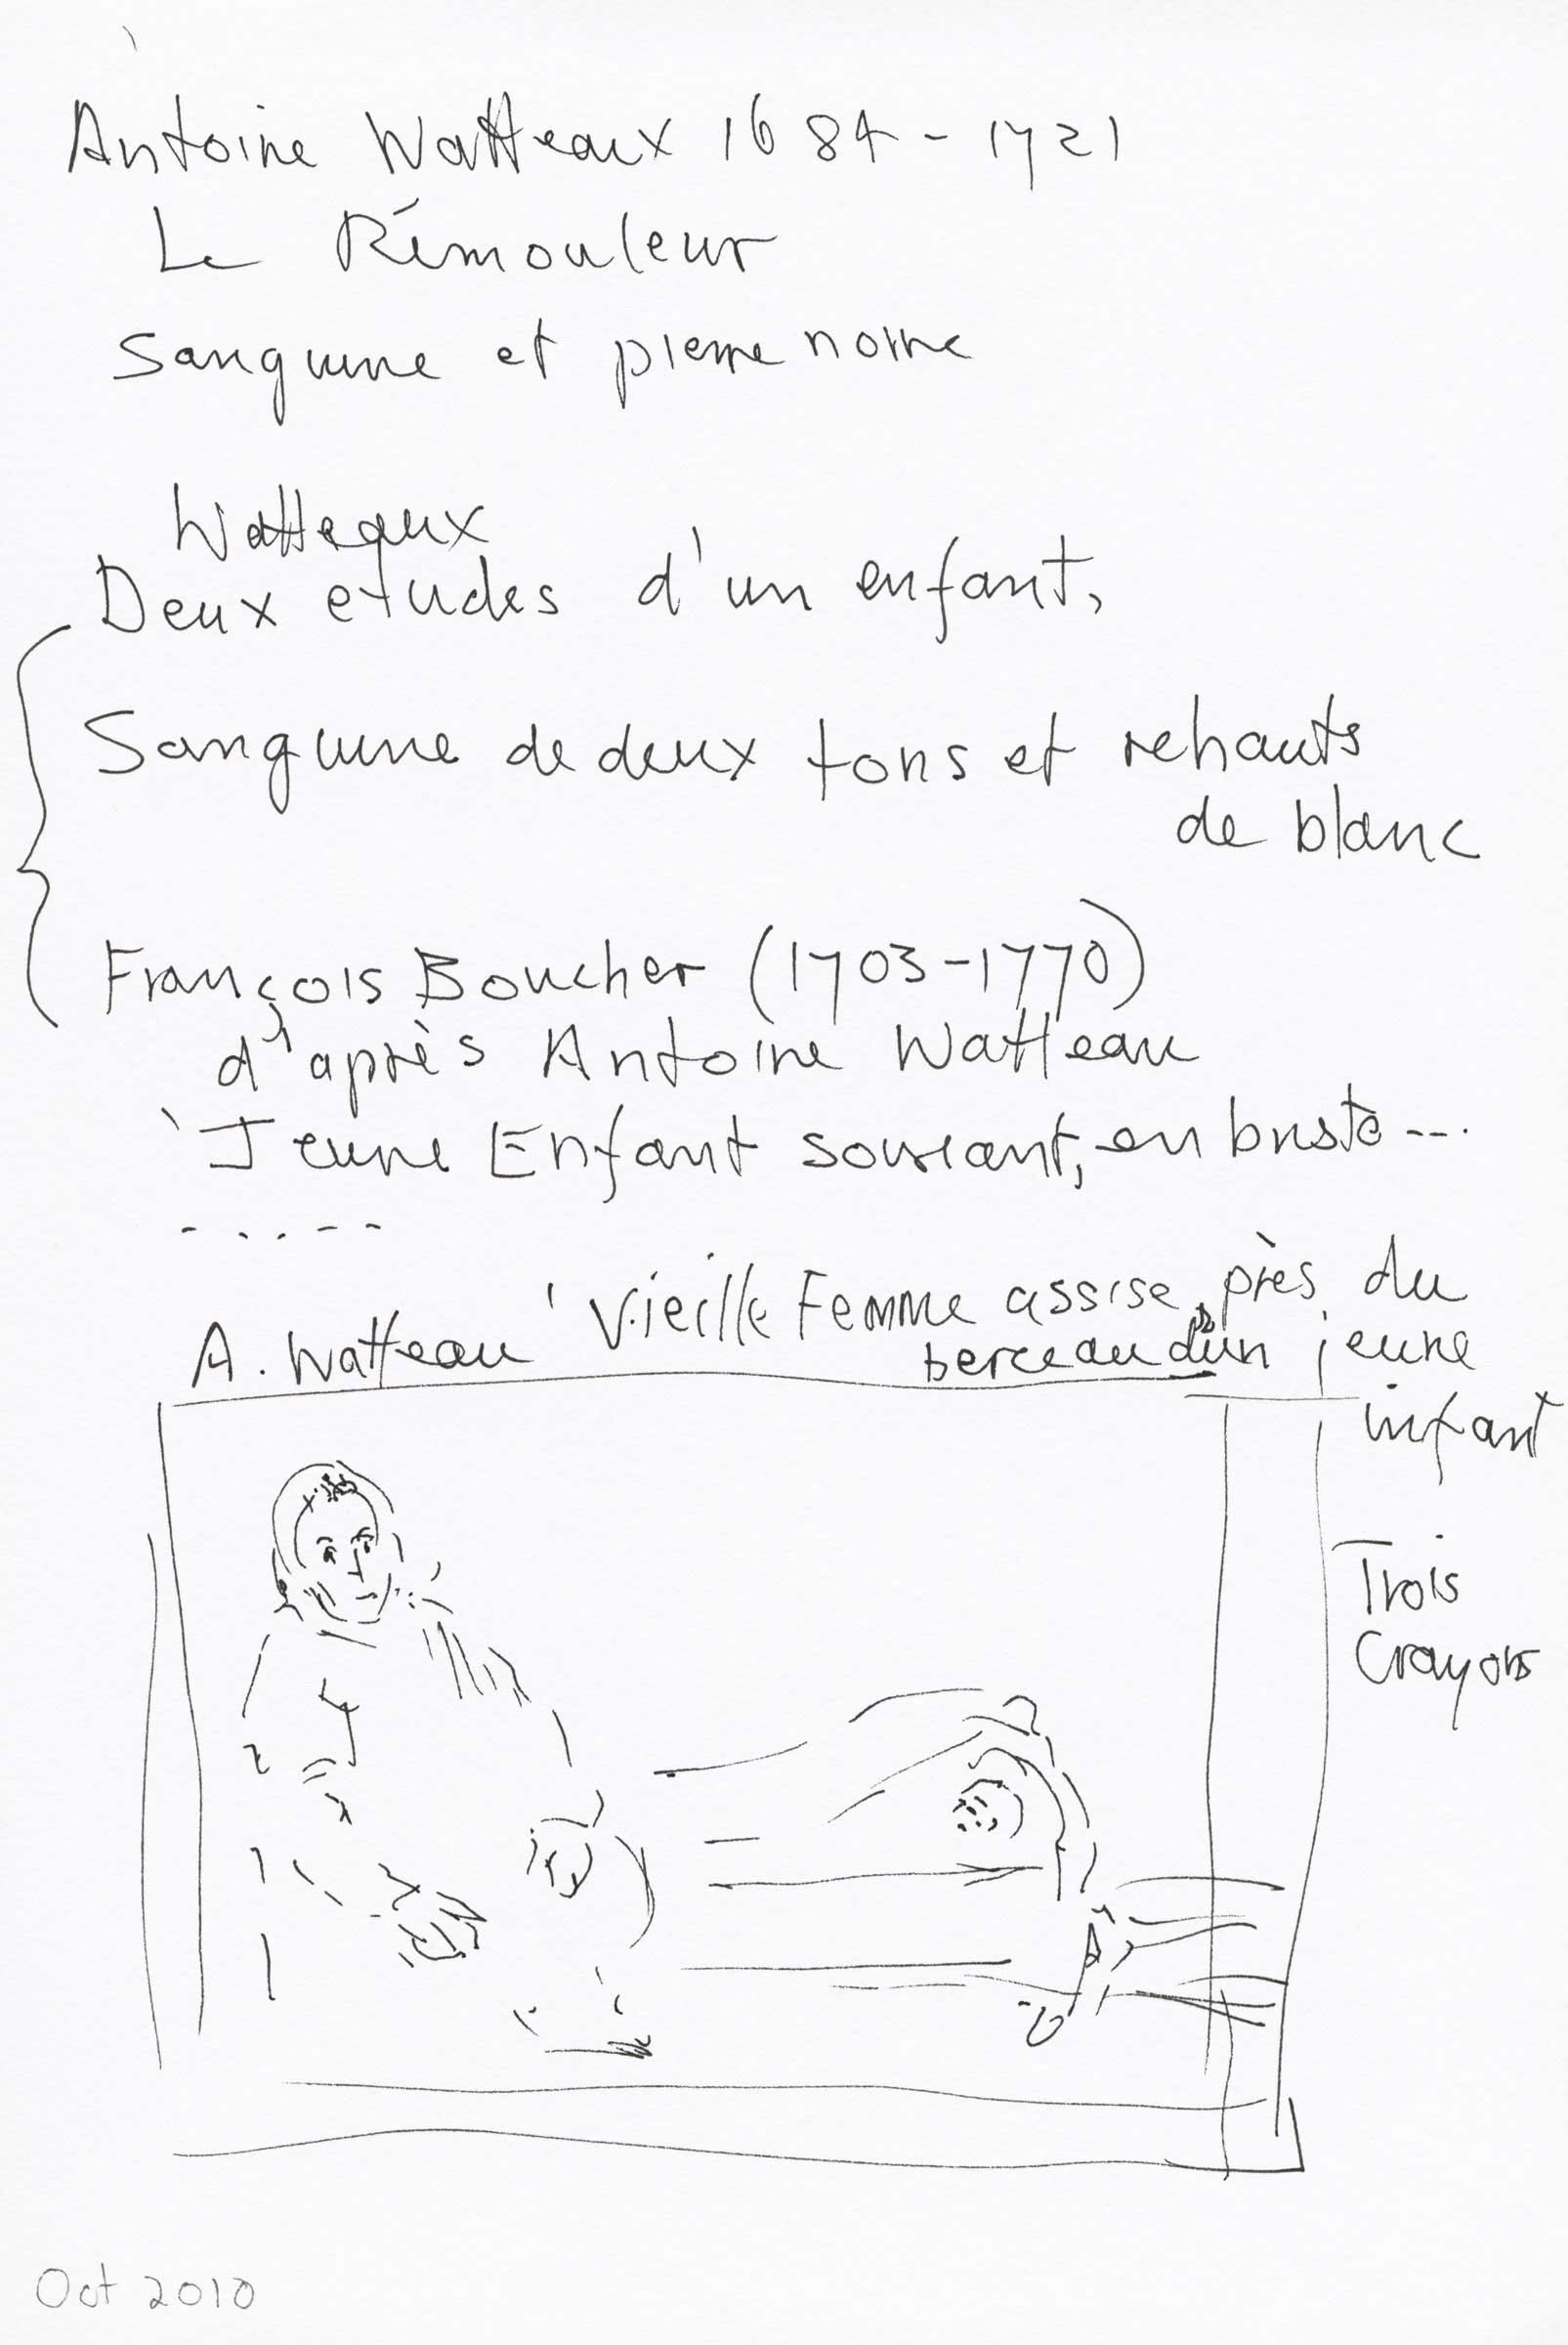 Antoine Watteaux 1684 - 1721
Le Rémouleur
Sanguine et pierre noire
Watteaux
Deux etudes d'un enfant,
Sanguine de deux tons et rehauts
de blanc
François Boucher (1703-1770)
d'après Antoine Watteau
'Jeune Enfant souriant, en buste ...
.....
A. Watteau 'Vieille Femme assise près du
berceau d'un jeune
infant
Trois
Crayons
Oct 2010